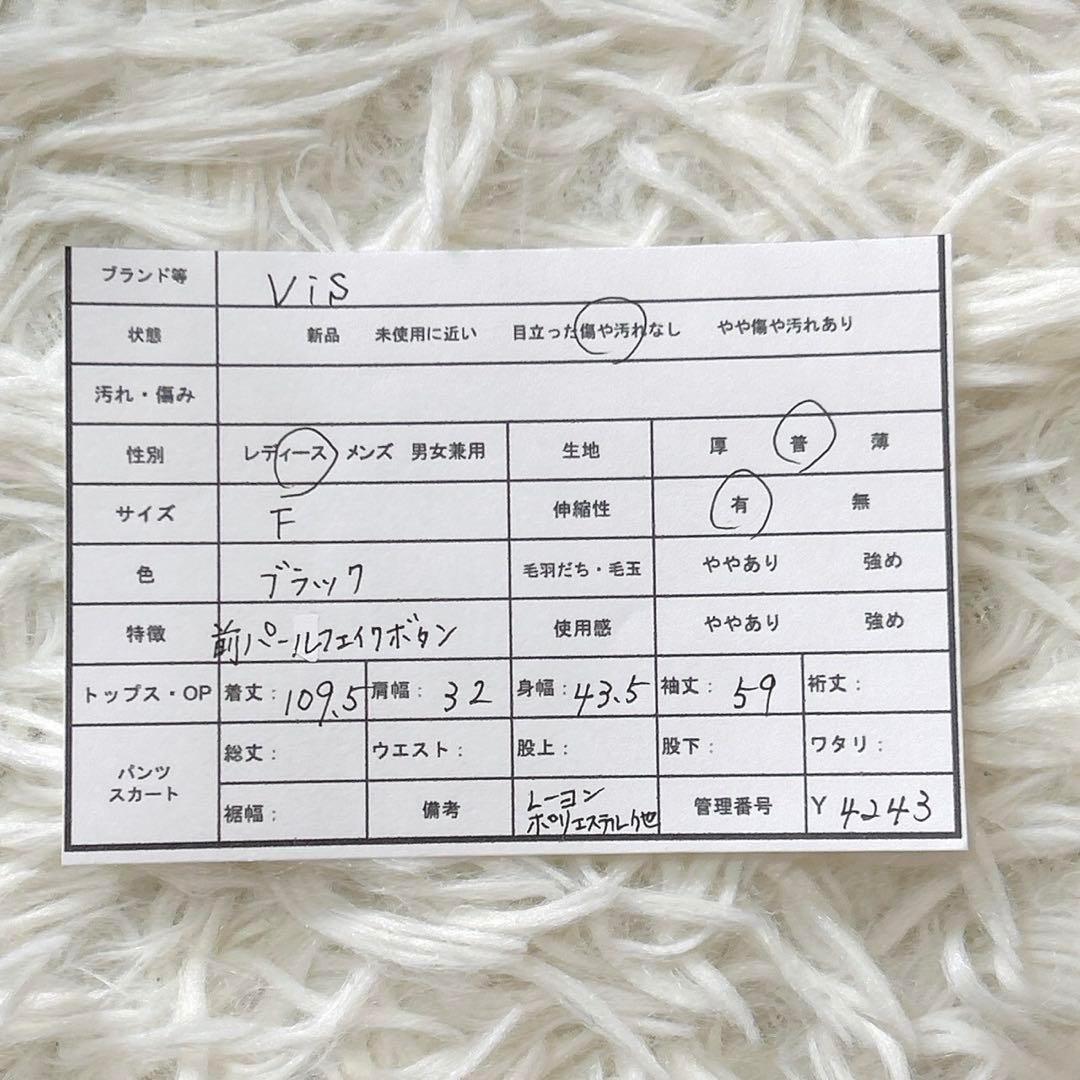 ブランド等 ViS
状態 新品 未使用に近い 目立った傷や汚れなし やや傷や汚れあり
汚れ・傷み
性別 レディース メンズ 男女兼用 生地 厚 普 薄
サイズ F 伸縮性 有 無
色 ブラック 毛羽だち・毛玉 ややあり 強め
特徴 前パールフェイクボタン 使用感 ややあり 強め
トップス・OP 着丈：109.5 肩幅：32 身幅：43.5 袖丈：59 裄丈：
パンツ
スカート
総丈： ウエスト： 股上： 股下： ワタリ：
裾幅： 備考 レーヨン
ポリエステル他
管理番号 Y 4243